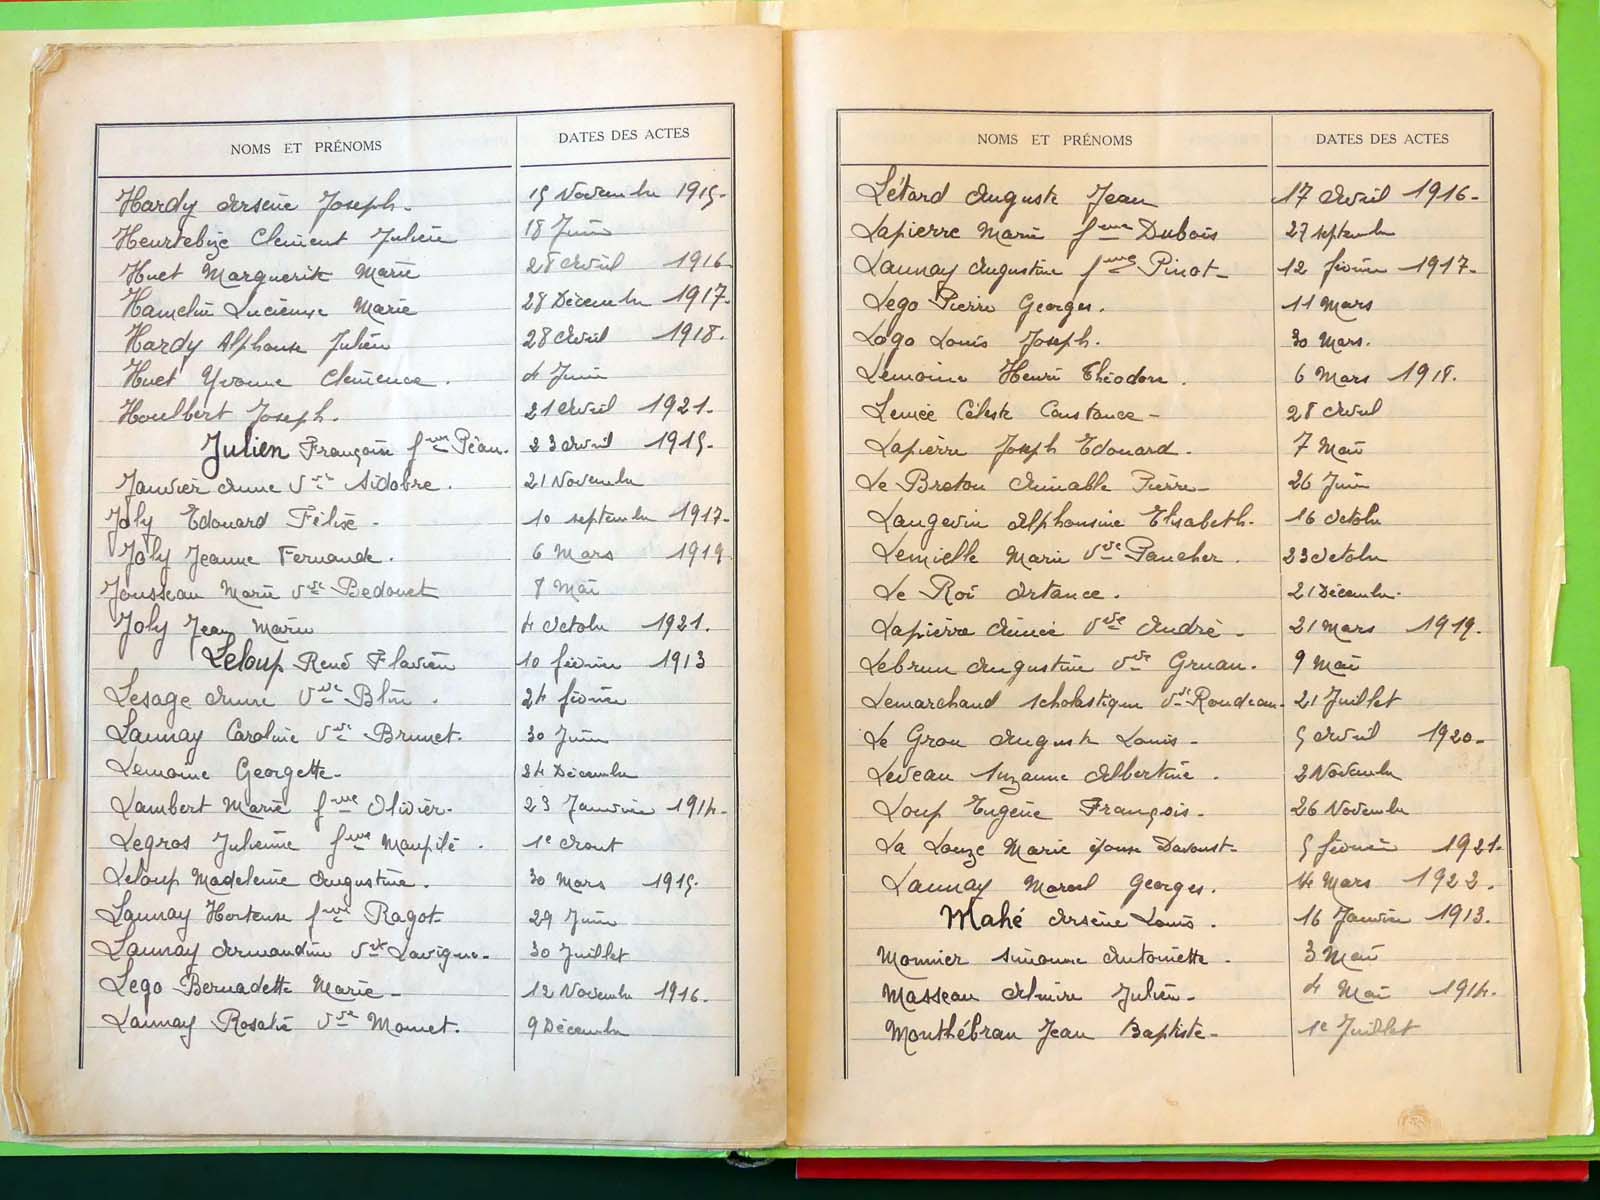 NOMS ET PRÉNOMS DATES DES ACTES
Hardy Arsène Joseph. 15 Novembre 1915.
Heurtebize Clément Julien 18 Juin
Huet Marguerite Marie 28 Avril 1916
Hamelin Lucienne Marie 28 Décembre 1917.
Hardy Alphonse Julien 28 Avril 1918.
Huet Yvonne Clémence. 4 Juin
Houlbert Joseph. 21 Avril 1921.
Julien Françoise fme Péan. 23 Avril 1915.
Janvier Anne Vve Sidobre. 21 Novembre
Joly Edouard Félix - 10 septembre 1917.
Joly Jeanne Fernande. 6 Mars 1919
Jousseau Marie Vve Bedouet 8 Mai
Joly Jean Marie 4 Octobre 1921.
Leloup René Flavien 10 février 1913
Lesage Anne Vve Blin. 24 février
Launay Caroline Vve Brunet. 30 Juin
Lemoine Georgette. 24 Décembre
Lambert Marie fme Olivier. 23 Janvier 1914.
Legros Julienne fme Maupilé. 1e Aout
Leloup Madeleine Augustine. 30 Mars 1915.
Launay Hortense fme Ragot. 29 Juin
Launay Armandine Vve Lavigne. 30 Juillet
Lego Bernadette Marie - 12 Novembre 1916.
Launay Rosalie Vve Momet. 9 Décembre
NOMS ET PRÉNOMS DATES DES ACTES
Létard Auguste Jean 17 Avril 1916.
Lapierre Marie fme Dubois 27 septembre
Launay Augustine fme Pinot 12 février 1917.
Lego Pierre Georges. 11 Mars
Logo Louis Joseph. 30 Mars.
Lemoine Henri Théodore. 6 Mars 1918.
Lemée Céleste Constance - 28 Avril
Lapierre Joseph Edouard. 7 Mai
Le Breton Aimable Pierre 26 Juin
Langevin Alphonsine Elisabeth. 16 Octobre
Lemielle Marie Vve Paucher. 23 Octobre
Le Roi Ortance. 21 Décembre.
Lapierre Aimée Vve André - 21 Mars 1919.
Lebrun Augustine Vve Gruau. 9 Mai
Lemarchand Scholastique Vve Rondeau. 21 Juillet
Le Grou Auguste Louis - 5 Avril 1920.
Leveau Suzanne Albertine. 2 Novembre
Loup Eugène François. 26 Novembre
La Louze Marie épouse Davoust. 5 février 1921.
Launay Marcel Georges. 14 Mars 1922.
Mahé Arsène Louis. 16 Janvier 1913.
Monnier Simonne Antoinette. 3 Mai
Masseau Almire Julien. 4 Mai 1914.
Monthébran Jean Baptiste. 1e Juillet